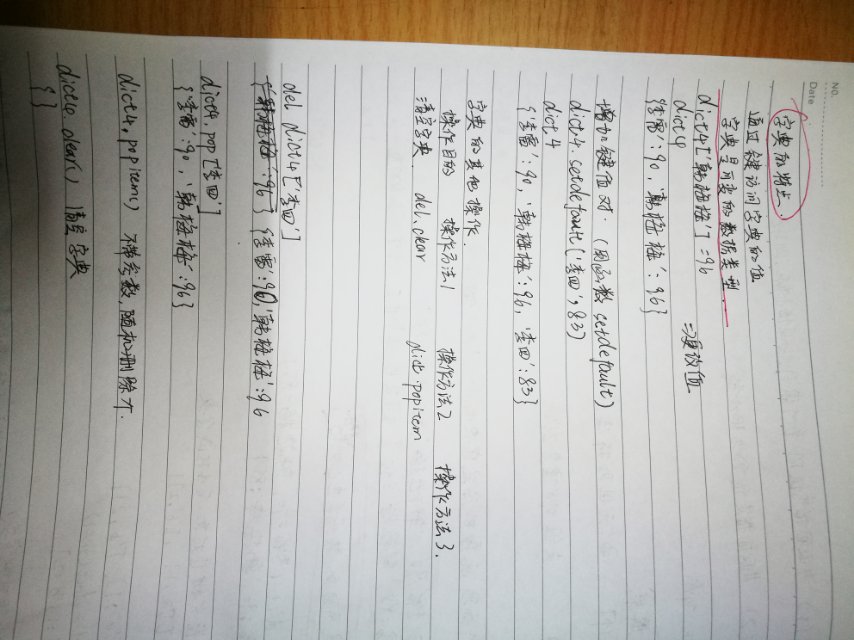 NO.
Date
字典的特点.
通过键访问字典的值
字典是可变的数据类型.
dict4['韩梅梅'] = 96 ⇒更改值
dict4
{'李雷': 90, '韩梅梅': 96}
增加键值对. (用函数 setdefault)
dict4.setdefault('李四', 83)
dict4
{'李雷': 90, '韩梅梅': 96, '李四': 83}
字典的其他操作.
操作目的 操作方法1 操作方法2 操作方法3.
清空字典. del.clear dict.popitem
del dict4['李四']
{'韩梅梅': 96} {'李雷': 90, '韩梅梅': 96
dict4.pop['李四']
{'李雷': 90, '韩梅梅': 96}
dict4.popitem() 不带参数,随机删除一个.
dict6.clear() 清空字典
{}